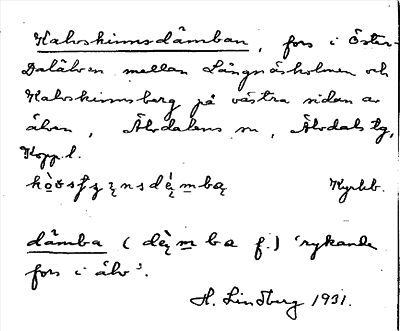 Kalvskinnsdämban, fors i Öster-
Dalälven mellan Långnäsholmen och
Kalvskinnsberg på västra sidan av
älven, Älvdalens sn, Älvdals tg,
Kopp. l.
Kyrkb.
dämba ( ba f.) 'rykande
fors i älv'.
H. Lindberg 1931.